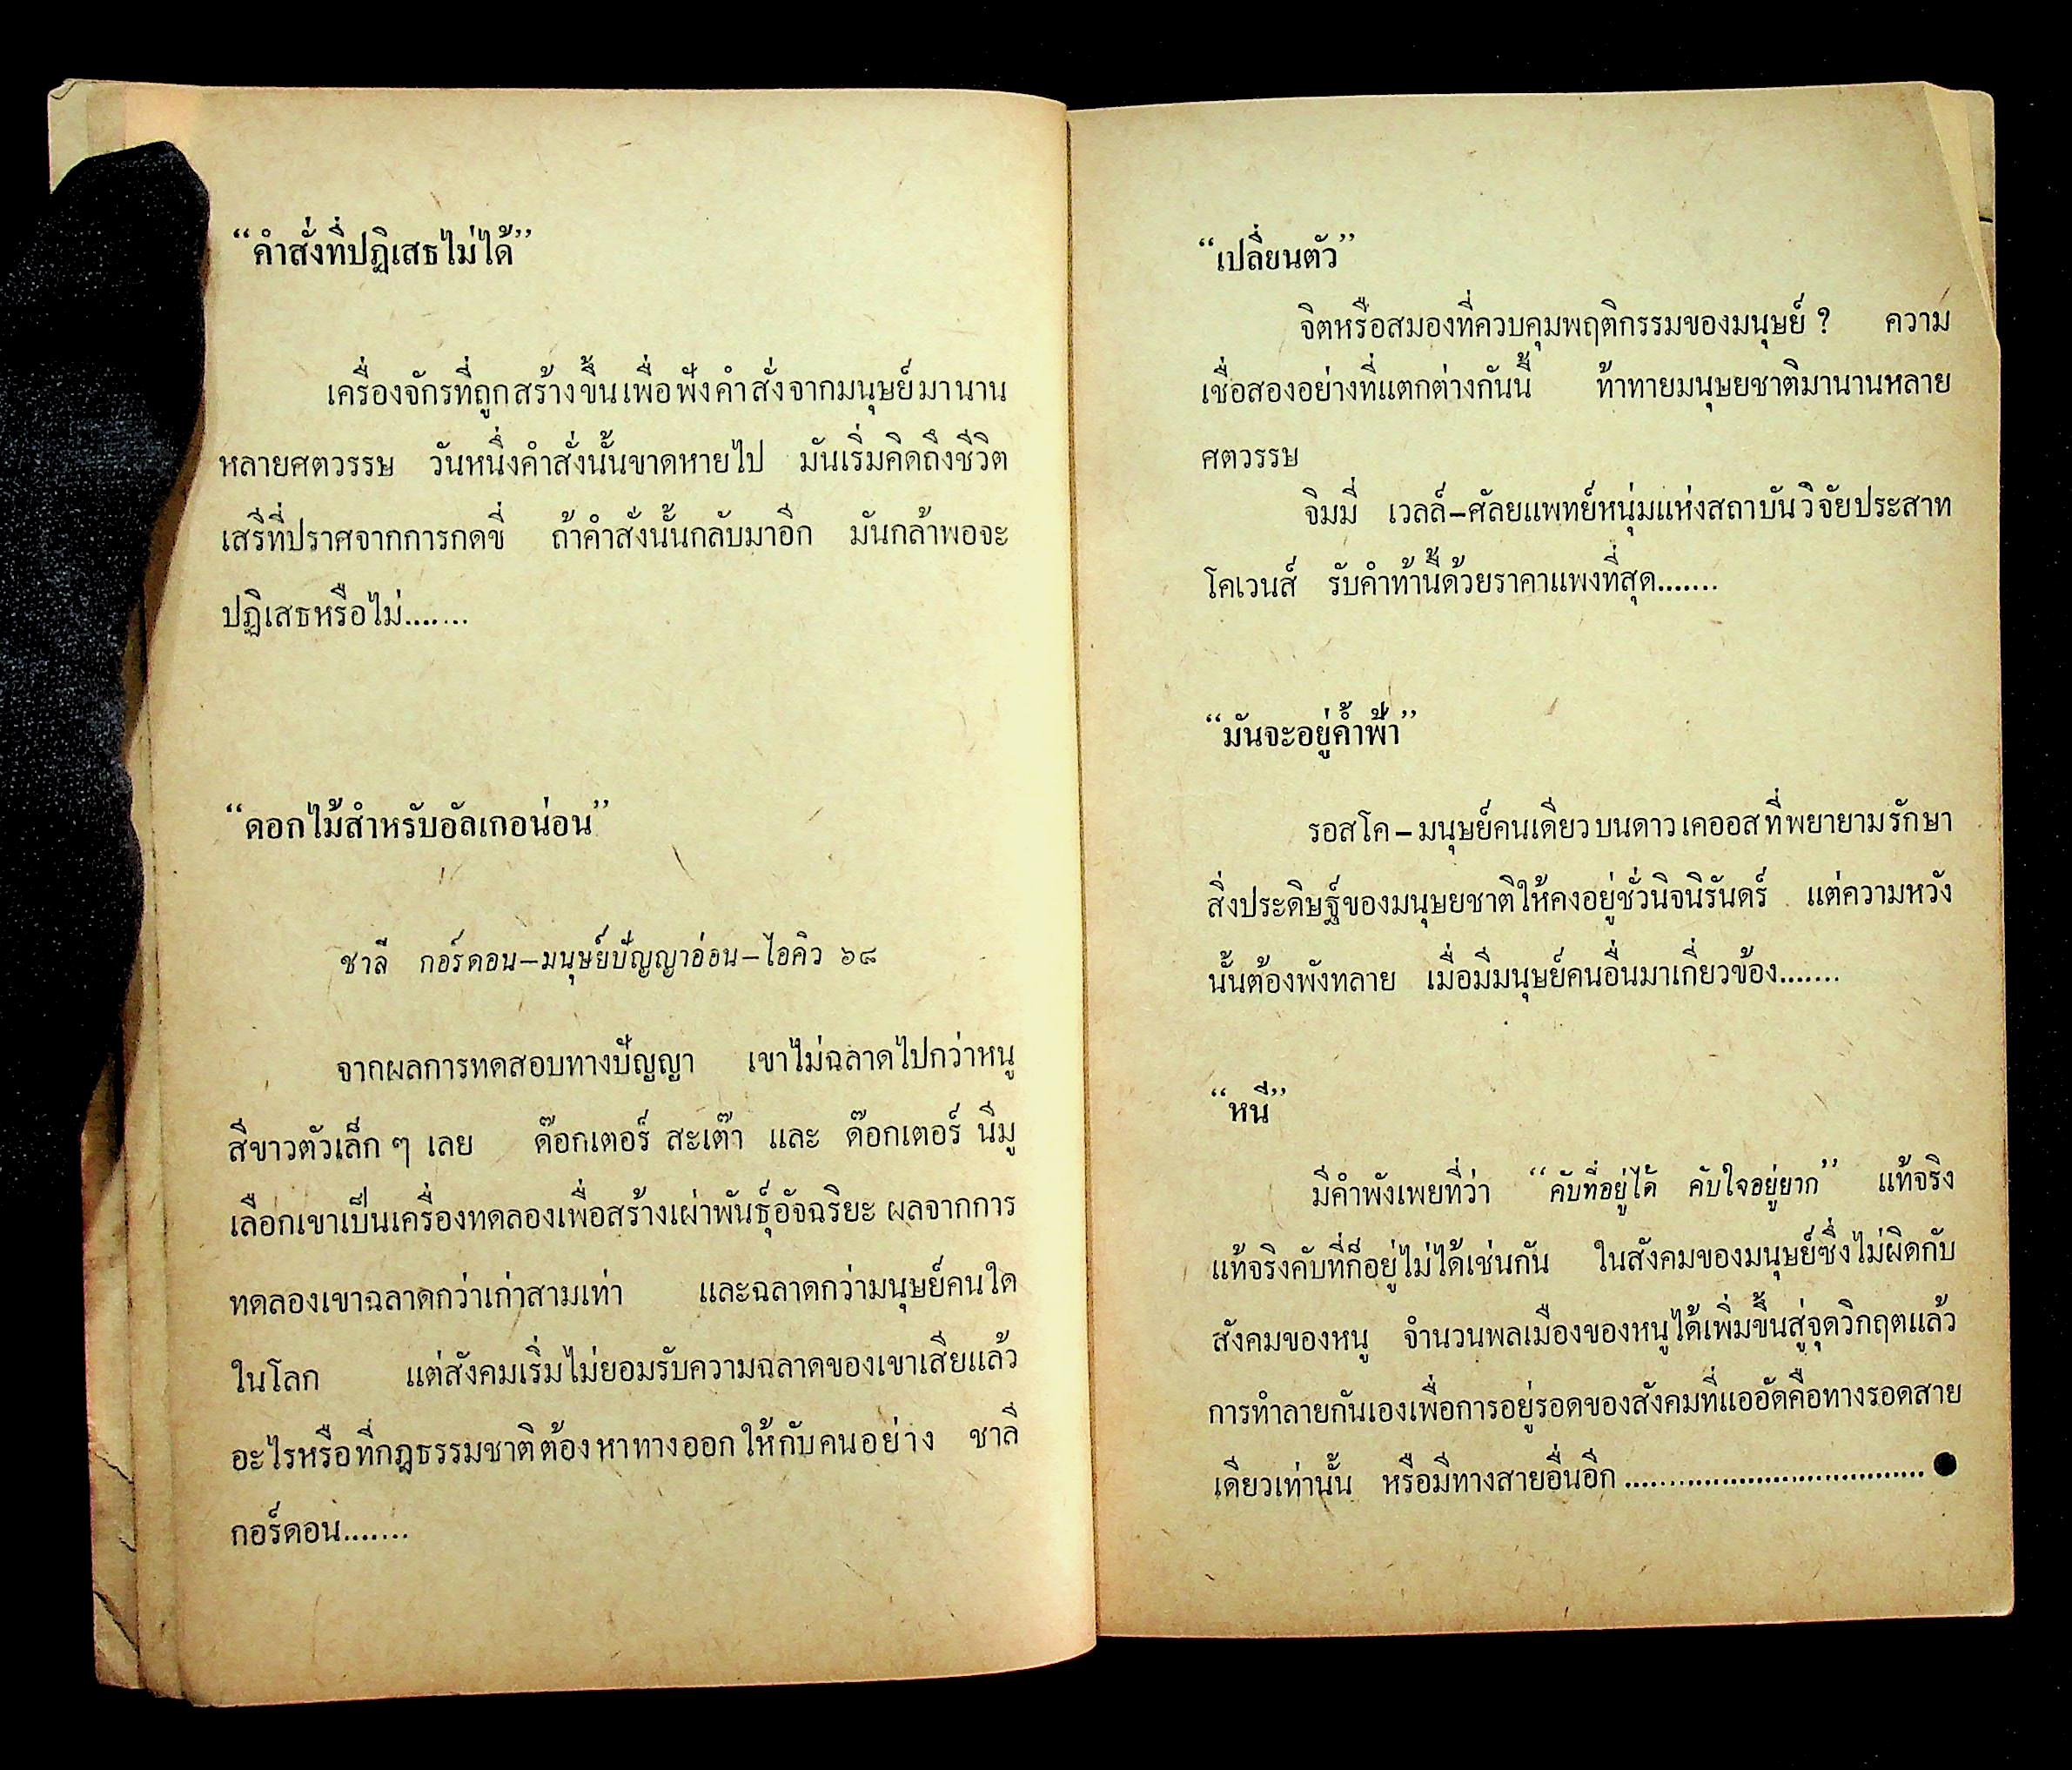 “คำสั่งที่ปฏิเสธไม่ได้”
เครื่องจักรที่ถูกสร้างขึ้นเพื่อฟังคำสั่งจากมนุษย์มานาน
หลายศตวรรษ วันหนึ่งคำสั่งนั้นขาดหายไป มันเริ่มคิดถึงชีวิต
เสรีที่ปราศจากการกดขี่ ถ้าคำสั่งนั้นกลับมาอีก มันกล้าพอจะ
ปฏิเสธหรือไม่.......
“ดอกไม้สำหรับอัลเกอน่อน”
ชาลี กอร์ดอน–มนุษย์ปัญญาอ่อน–ไอคิว ๖๘
จากผลการทดสอบทางปัญญา เขาไม่ฉลาดไปกว่าหนู
สีขาวตัวเล็ก ๆ เลย ด๊อกเตอร์ สะเต๊า และ ด๊อกเตอร์ นีมู
เลือกเขาเป็นเครื่องทดลองเพื่อสร้างเผ่าพันธุ์อัจฉริยะ ผลจากการ
ทดลองเขาฉลาดกว่าเก่าสามเท่า และฉลาดกว่ามนุษย์คนใด
ในโลก แต่สังคมเริ่มไม่ยอมรับความฉลาดของเขาเสียแล้ว
อะไรหรือที่กฎธรรมชาติต้องหาทางออกให้กับคนอย่าง ชาลี
กอร์ดอน.......
“เปลี่ยนตัว”
จิตหรือสมองที่ควบคุมพฤติกรรมของมนุษย์ ? ความ
เชื่อสองอย่างที่แตกต่างกันนี้ ท้าทายมนุษยชาติมานานหลาย
ศตวรรษ
จิมมี่ เวลล์–ศัลยแพทย์หนุ่มแห่งสถาบันวิจัยประสาท
โคเวนส์ รับคำท้านี้ด้วยราคาแพงที่สุด.......
“มันจะอยู่ค้ำฟ้า”
รอสโค – มนุษย์คนเดียวบนดาวเคออสที่พยายามรักษา
สิ่งประดิษฐ์ของมนุษยชาติให้คงอยู่ชั่วนิจนิรันดร์ แต่ความหวัง
นั้นต้องพังทลาย เมื่อมีมนุษย์คนอื่นมาเกี่ยวข้อง.......
“หนี”
มีคำพังเพยที่ว่า “คับที่อยู่ได้ คับใจอยู่ยาก” แท้จริง
แท้จริงคับที่ก็อยู่ไม่ได้เช่นกัน ในสังคมของมนุษย์ซึ่งไม่ผิดกับ
สังคมของหนู จำนวนพลเมืองของหนูได้เพิ่มขึ้นสู่จุดวิกฤตแล้ว
การทำลายกันเองเพื่อการอยู่รอดของสังคมที่แออัดคือทางรอดสาย
เดียวเท่านั้น หรือมีทางสายอื่นอีก .................................... ●